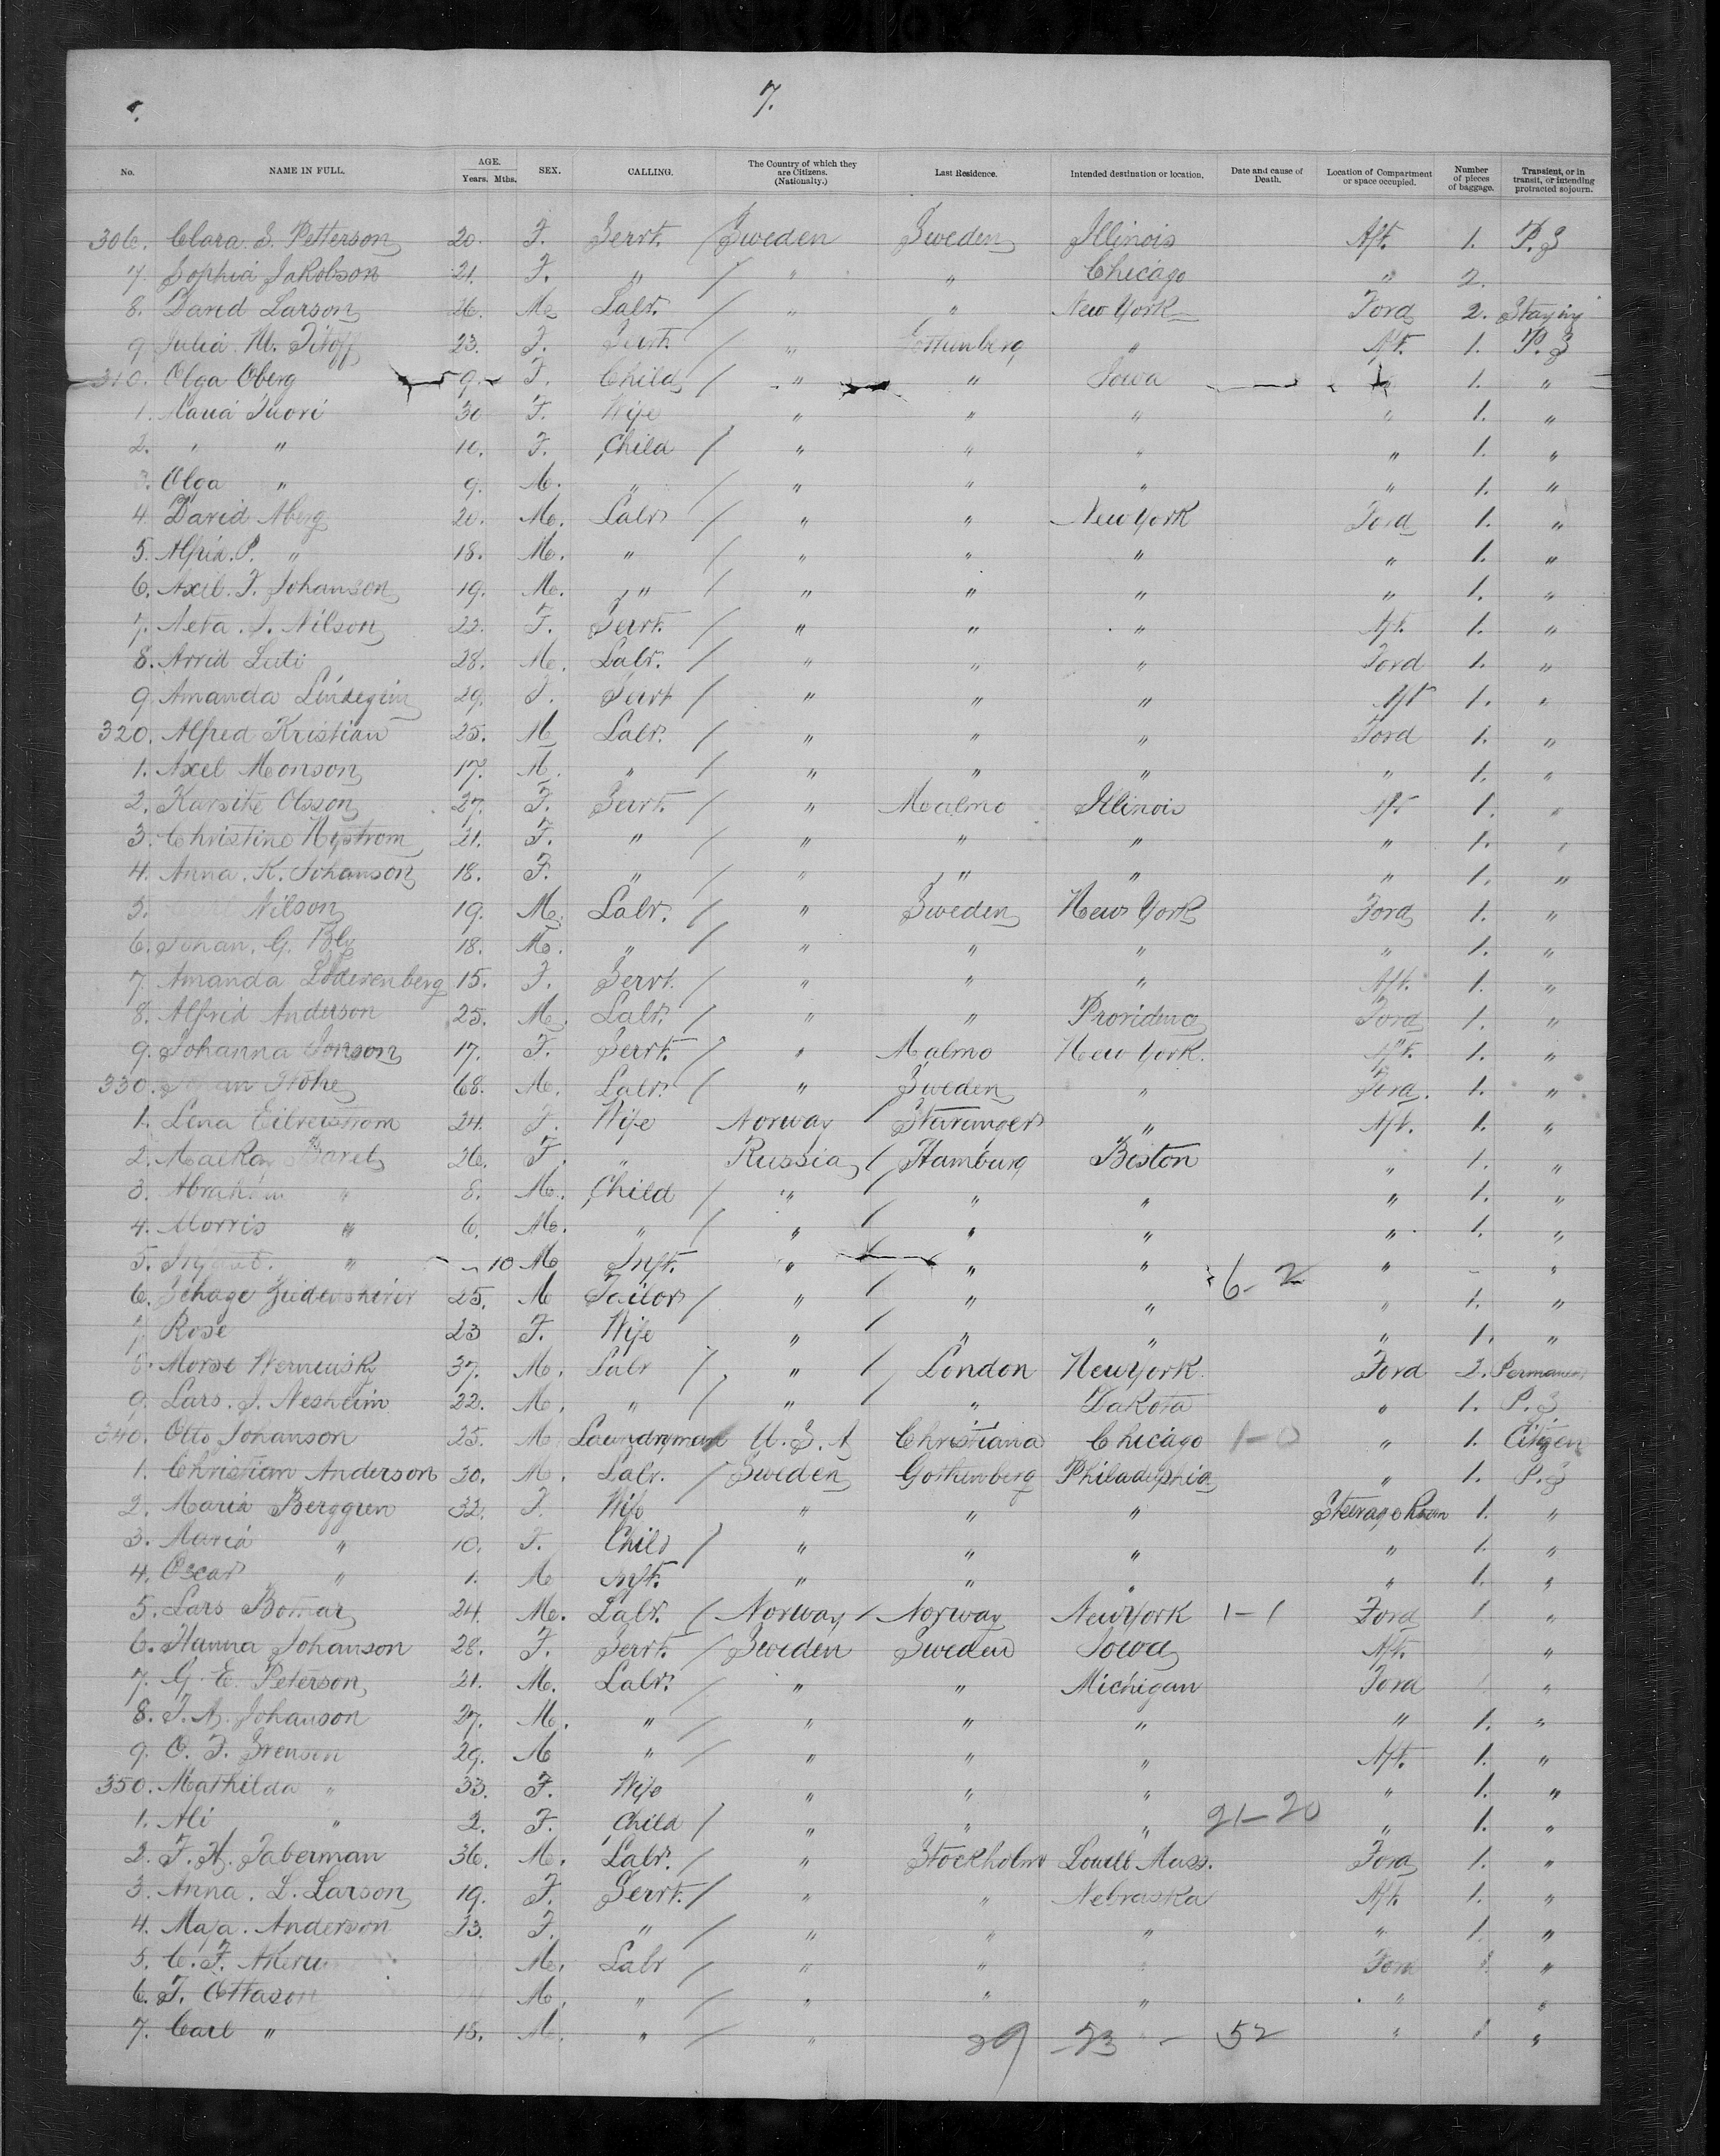 7.
No. NAME IN FULL. AGE. Years. Mths. SEX. CALLING. The Country of which they are Citizens. (Nationality.) Last Residence. Intended destination or location. Date and cause of Death. Location of Compartment or space occupied. Number of pieces of baggage. Transient, or in transit, or intending protracted sojourn.
306. Clara. S. Petterson 20. F. Servt. / Sweden Sweden Illinois Aft. 1. P.S
7. Sophia Jakobson 21. F. " / " " Chicago " 2.
8. David Larson 26. M. Labr. / " " New York Ford 2. Staying
9 Julia. M. 23. F. Servt. / " Gothenberg " Aft. 1. P.S
310. Olga Oberg 9. F. Child / " " Iowa " 1. "
1. Maria Tuori 30 F. Wife " " " " 1. "
2. " " 10. F. Child / " " " " 1. "
3. Olga " 9. M. " / " " " " 1. "
4. David Aberg 20. M. Labr / " " New York Ford 1. "
5. Alfrid. P. " 18. M. " / " " " " 1. "
6. Axil. F. Johanson 19. M. " / " " " " 1. "
7. Neta. S. Nilson 22. F. Servt. / " " " Aft. 1. "
8. Arvid 28. M. Labr. / " " " Ford 1. "
9 Amanda 29. F. Servt / " " " Aft 1. "
320. Alfred Kristian 25. M Labr. / " " " Ford 1. "
1. Axel Monson 17. M. " / " " " " 1. "
2. Karsite Olsson 27. F. Servt. / " Malmo Illinois Aft 1. "
3. Christine Nystrom 21. F. " / " " " " 1. "
4. Anna. K. Johanson 18. F. " / " " " " 1. "
5. Nilson 19. M. Labr. / " Sweden New York Ford 1. "
6. Johan. G. 18. M. " / " " " " 1. "
7. Amanda Loderenberg 15. F. Servt. / " " " Aft. 1. "
8. Alfrid Anderson 25. M. Labr. / " " Providence Ford 1. "
9. Johanna Jonson 17. F. Servt. / " Malmo New York. Aft. 1. "
330. 68. M. Labr. / " Sweden " Ford. 1. "
1. Lena 24. F. Wife Norway / Stavanger " Aft. 1. "
2. Malka 26. F. " Russia / Hamburg Boston " 1. "
3. Abraham " 8. M. Child / " / " " " 1. "
4. Morris " 6. M. " / " / " " " 1. "
5. " 10 M Inft. " / " " " "
6-2
6. 25. M Tailor / " / " " " 1. "
7. Rose 23 F. Wife " / " " " 1. "
8. Morse 37. M. Labr / " / London New York Ford 2. Permanent
9. Lars. S. Nesheim 22. M. " / " / " Dakota " 1. P.S
340. Otto Johanson 25. M. Laundryman U.S.A Christiana Chicago 1-0 " 1. Citizen
1. Christian Anderson 30. M. Labr. / Sweden Gothenberg Philadelphia " 1. P.S
2. Maria Berggren 32. F. Wife " " " Steerage Room 1. "
3. Maria " 10. F. Child / " " " " 1. "
4. Oscar " 1. M Inft. " " " " 1. "
5. Lars 24. M. Labr. / Norway / Norway New York 1-1 Ford 1. "
6. Hanna Johanson 28. F. Servt. / Sweden Sweden Iowa Aft. "
7. G. E. Peterson 21. M. Labr. " " Michigan Ford "
8. F. A. Johanson 27. M. " / " " " " 1. "
9. O. F. 29. M " / " " " Aft. 1. "
350. Mathilda " 33. F. Wife " " " " 1. "
21-20
1. Ali " 2. F. Child / " " " " 1. "
2. F. A. Faberman 36. M. Labr. / " Stockholm Lowell Mass. Ford 1. "
3. Anna. L. Larson 19. F. Servt. / " " Nebraska Aft. 1. "
4. Maja. Anderson 13. F. " / " " " " 1. "
5. C. F. M. Labr / " " " Ford 1. "
6. F. Ottason M. " / " " " " "
7. Carl " 15. M. " / " " 1 "
29 53 - 52